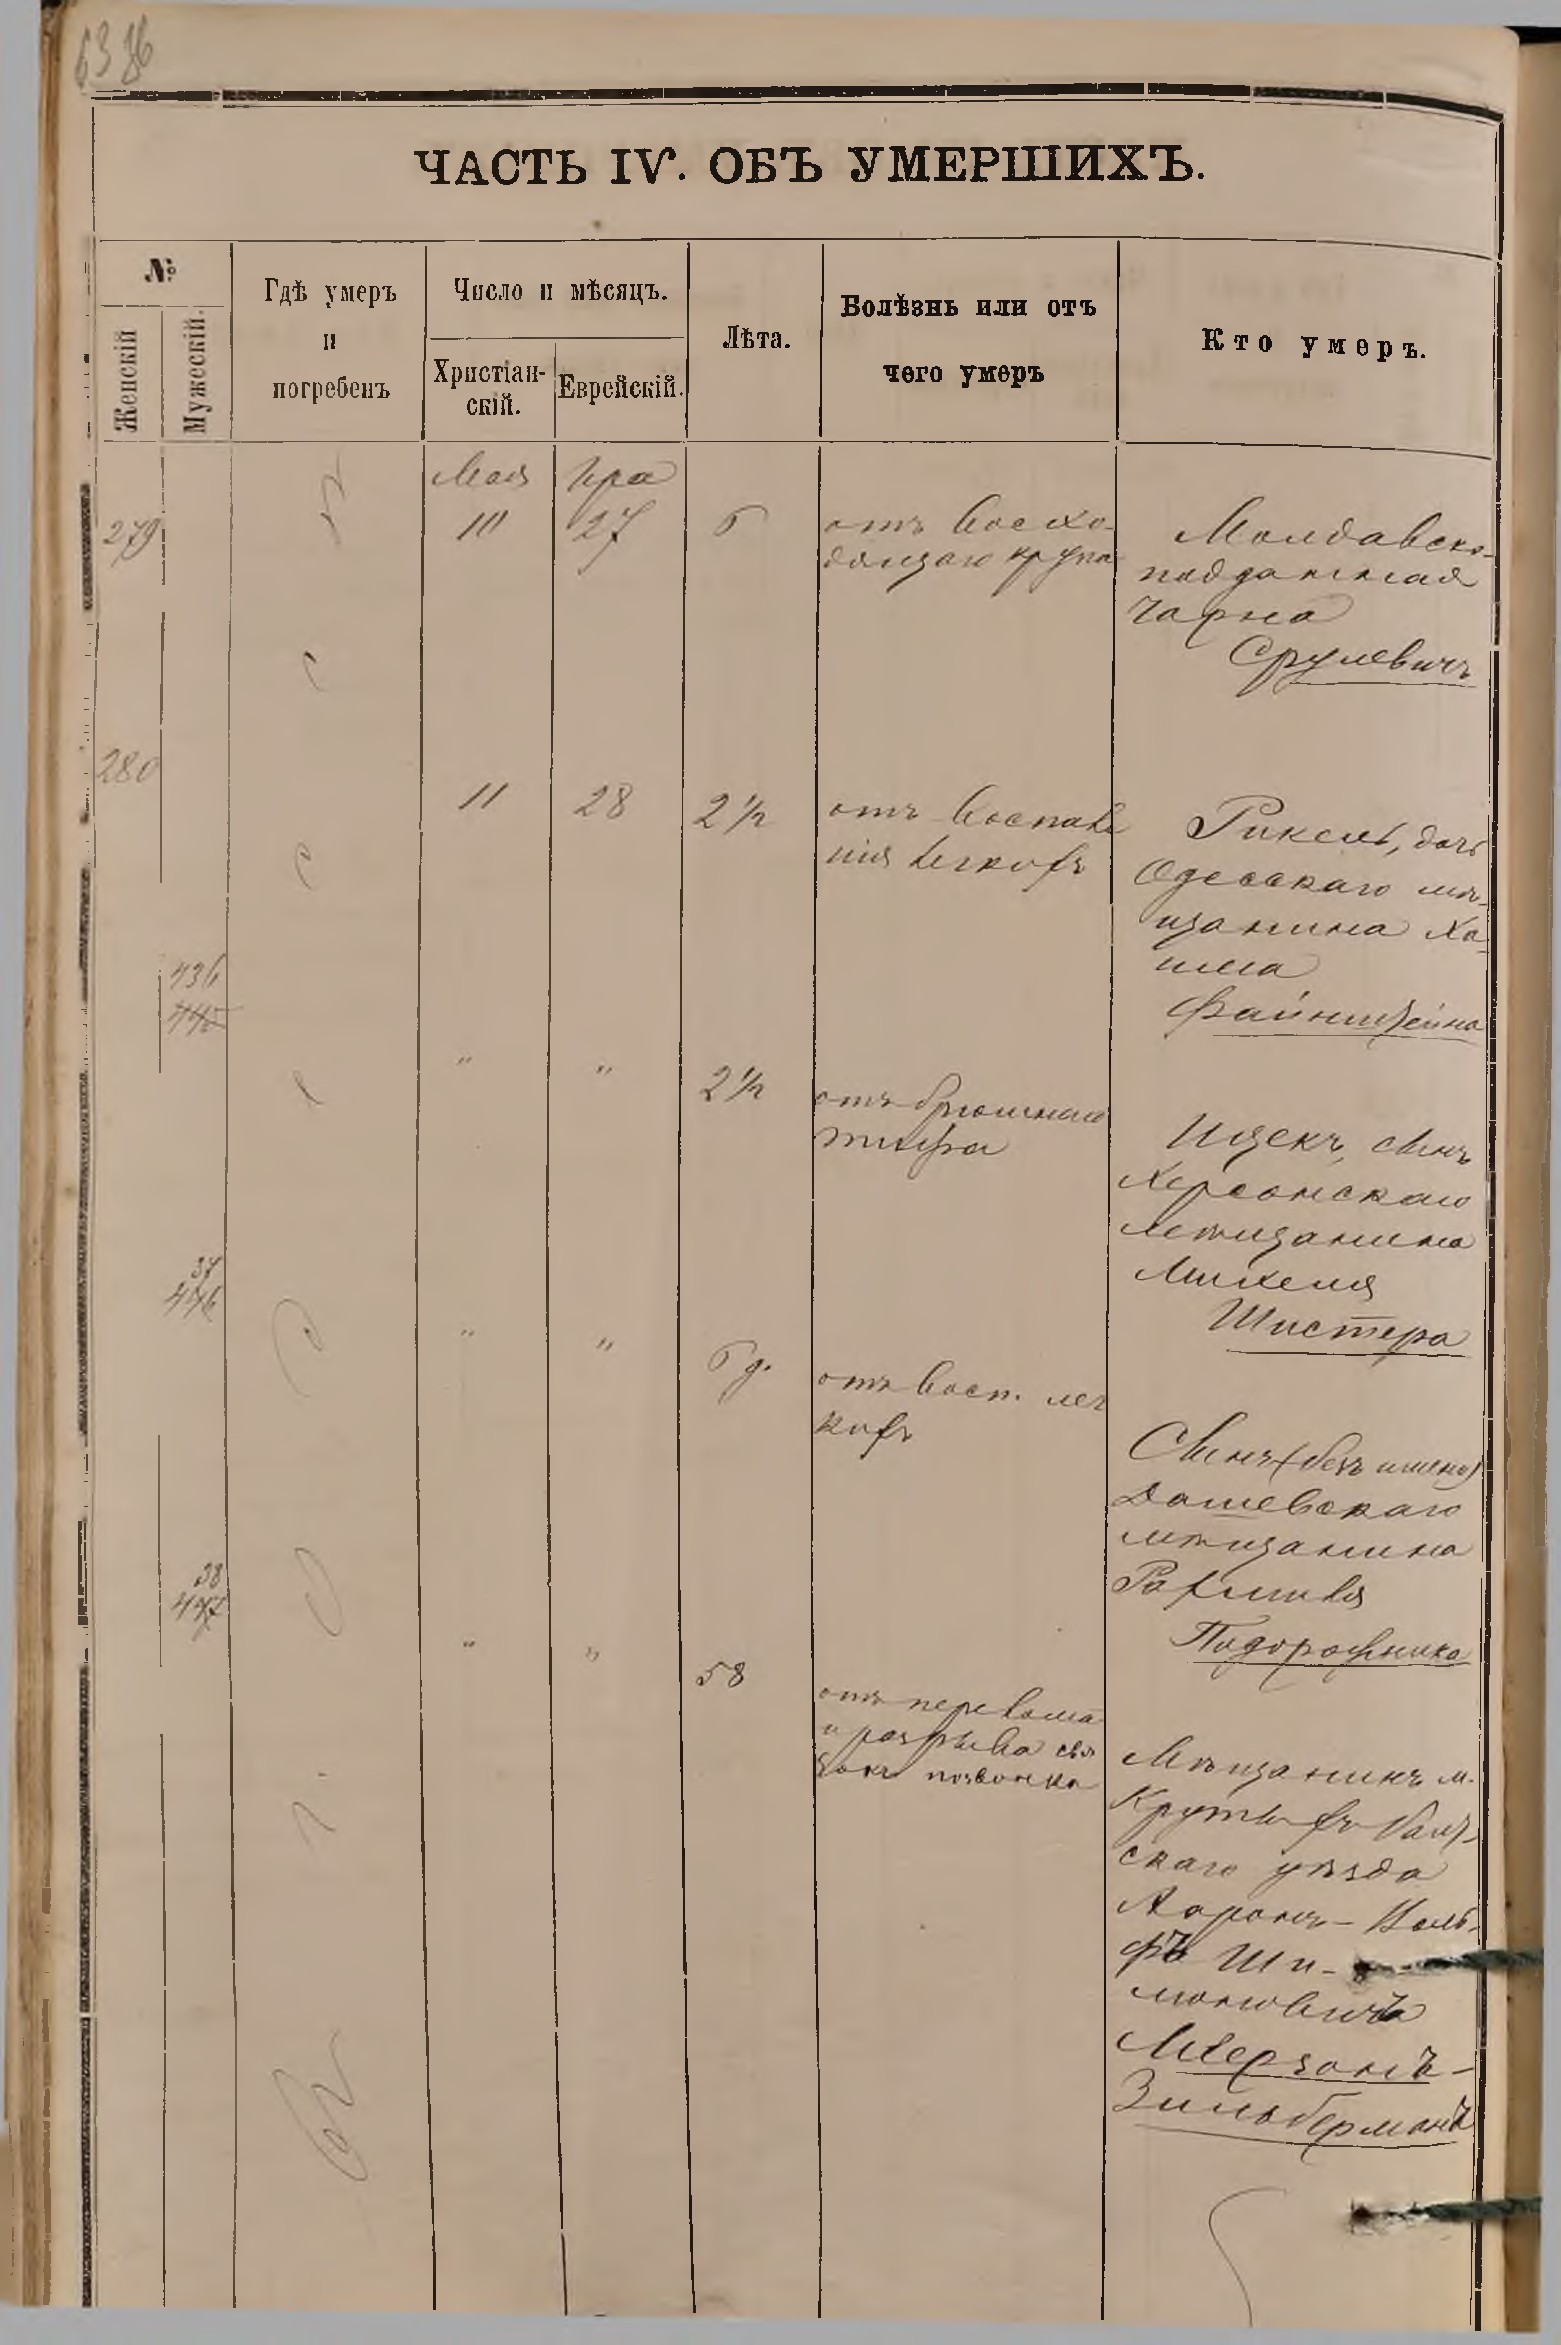 ЧАСТЬ IV. ОБЪ УМЕРШИХЪ.
№
Женскій
Мужескій.
Гдѣ умеръ
и
погребенъ
Число и мѣсяцъ.
Христіан-
скій.
Еврейскій.
Лѣта.
Болѣзнь или отъ
чего умеръ
Кто умеръ.
въ
Одессѣ
Мая
Іира
279
27
отъ восхо-
дящаго крупа
Молдавско-
подданная
Чарна
Срулевичъ
280
11
28
2 1/2
отъ воспале
нія легкихъ
Рикель, дочь
Одесскаго мѣ-
щанина Ха-
има
Файнштейна
436
445
"
"
2 1/2
отъ брюшнаго
тифа
Ицекъ, сынъ
Херсонскаго
мѣщанина
Михеля
Шистера
37
446
"
"
отъ восп. лег
кихъ
Сынъ (безъ имени)
Дашевскаго
мѣщанина
Рахмиля
Подорожника
38
447
"
"
58
отъ перелома
и разрыва свя
зокъ позвонка
Мѣщанинъ м.
Крутыхъ Балт-
скаго уѣзда
Ааронъ-Воль-
фъ Ши-
моновичъ
Мерзонъ-
Зильберманъ